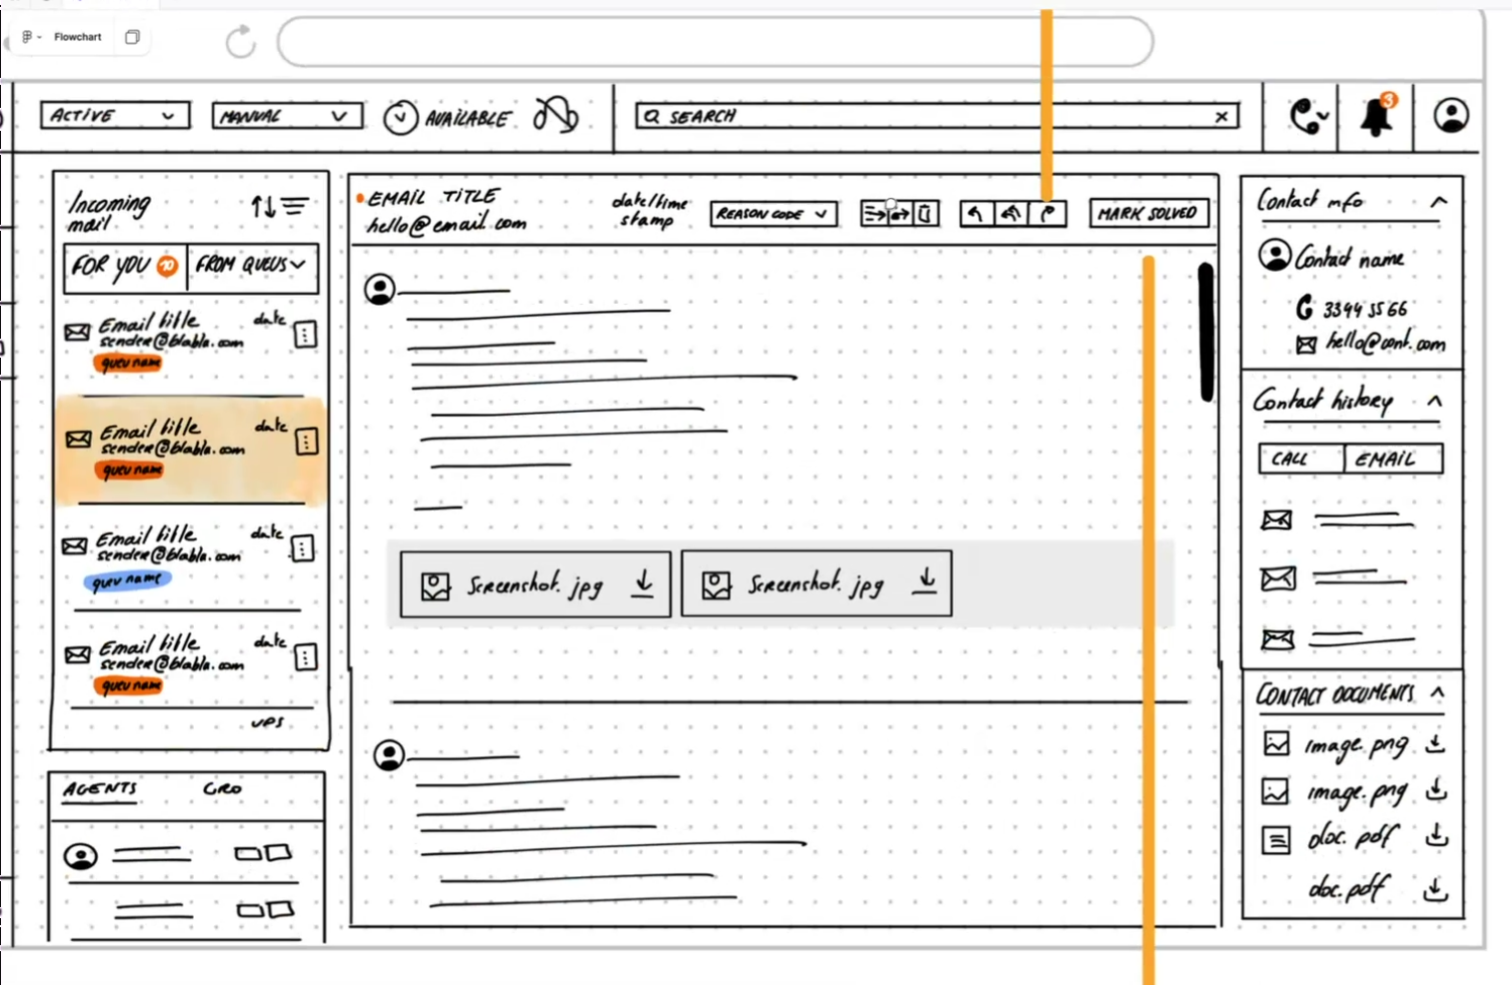 Flowchart
ACTIVE
MANUAL
AVAILABLE
SEARCH
3
Incoming
mail
FOR YOU 10
FROM QUEUS
Email title
date
sender@blabla.com
queu name
Email title
date
sender@blabla.com
queu name
Email title
date
sender@blabla.com
queu name
Email title
date
sender@blabla.com
queu name
AGENTS
EMAIL TITLE
hello@email.com
date/time
stamp
REASON CODE
MARK SOLVED
Screenshot.jpg
Screenshot.jpg
Contact info
Contact name
3344 5566
hello@cont.com
Contact history
CALL
EMAIL
CONTACT DOCUMENTS
image.png
image.png
doc.pdf
doc.pdf